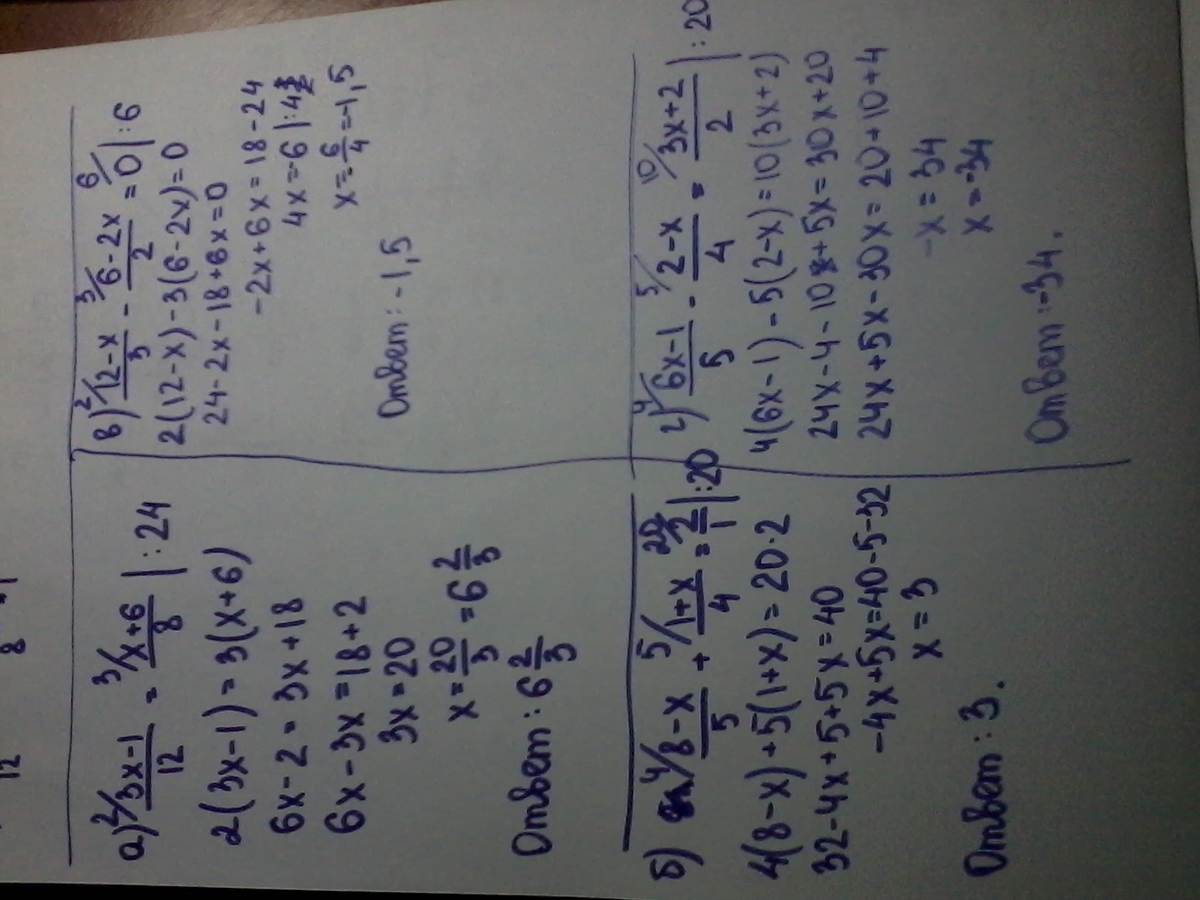 12 8
а) 2/ 3x-1/12 = 3/ x+6/8 |:24
2(3x-1)=3(x+6)
6x-2=3x+18
6x-3x=18+2
3x=20
x=20/3=6 2/3
Ответ: 6 2/3
б) 4/ 8-x/5 + 5/ 1+x/4 = 20/ 2/1 |:20
4(8-x)+5(1+x)=20·2
32-4x+5+5x=40
-4x+5x=40-5-32
x=3
Ответ: 3.
в) 2/ 12-x/3 - 3/ 6-2x/2 = 6/ 0 |:6
2(12-x)-3(6-2x)=0
24-2x-18+6x=0
-2x+6x=18-24
4x=-6 |:4
x=-6/4=-1,5
Ответ: -1,5
г) 4/ 6x-1/5 - 5/ 2-x/4 = 10/ 3x+2/2 |:20
4(6x-1)-5(2-x)=10(3x+2)
24x-4-10+5x=30x+20
24x+5x-30x=20+10+4
-x=34
x=-34
Ответ: -34.